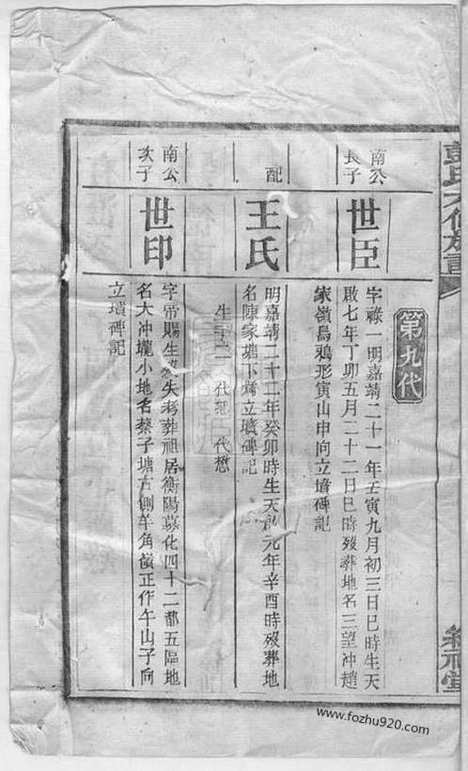 彭氏六修族譜
第九代
南公
長子
世臣
字祿一明嘉靖二十一年壬寅九月初三日巳時生天
啟七年丁卯五月二十二日巳時歿葬地名三望冲趙
家嶺烏鴉形寅山申向立墳碑記
配
王氏
明嘉靖二十二年癸卯時生天啟元年辛酉時歿葬地
名陳家塘下塆立墳碑記
生子二 代 代懋
南公
次子
世印
字帝賜生歿失考葬祖居衡陽慕化四十二都五區地
名大冲壠小地名蔡子塘右側羊角嶺正作午山子向
立墳碑記
堂
www.fozhu920.com